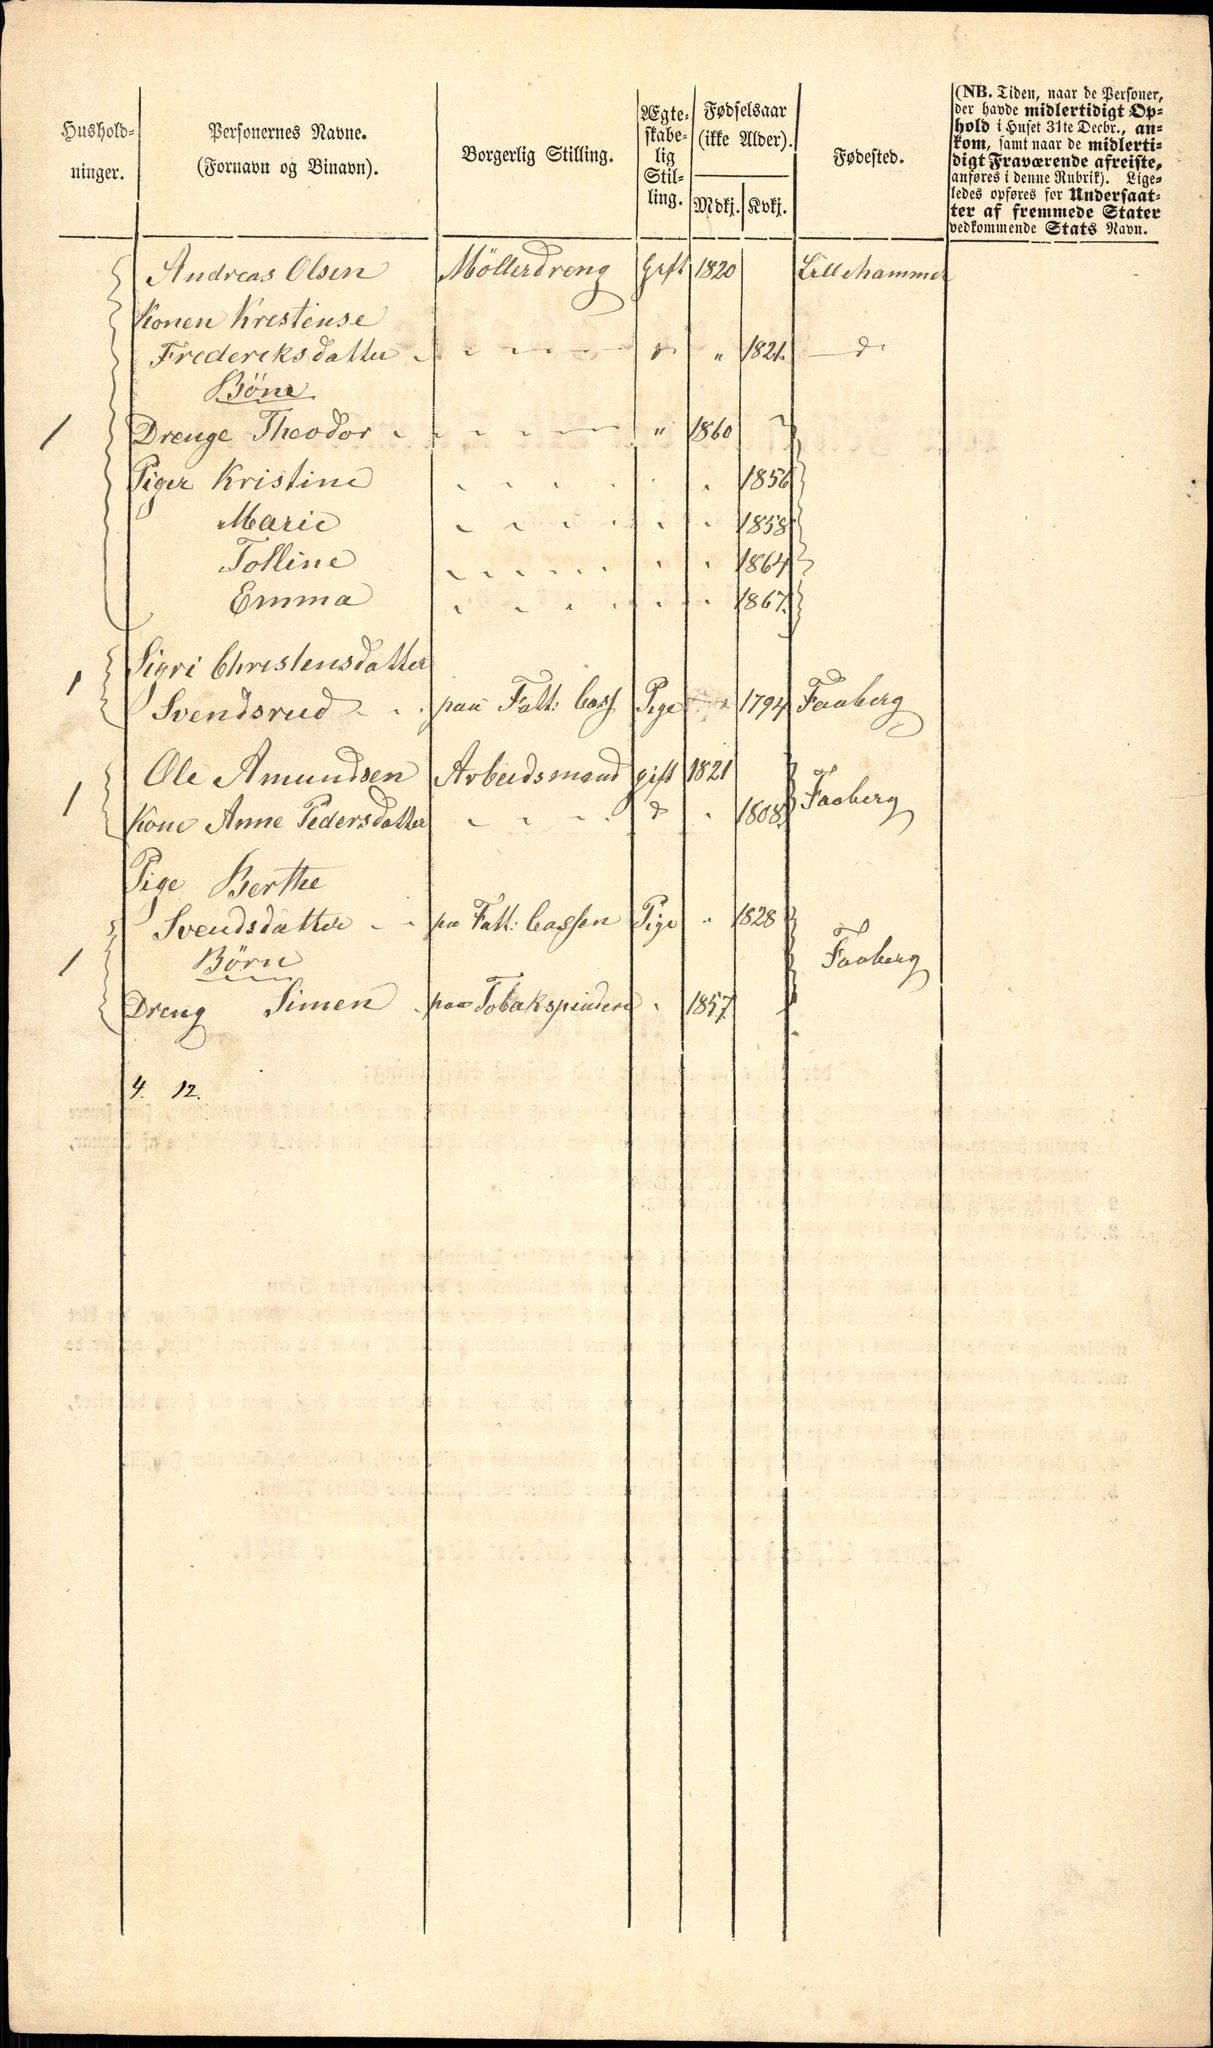 Hushold-
ninger.
Personernes Navne.
(Fornavn og Binavn).
Borgerlig Stilling.
Ægte-
skabe-
lig
Stil-
ling.
Fødselsaar
(ikke Alder).
Mdkj. Kvkj.
Fødested.
(NB. Tiden, naar de Personer,
der havde midlertidigt Op-
hold i Huset 31te Decbr., an-
kom, samt naar de midlerti-
digt Fraværende afreiste,
anføres i denne Rubrik). Lige-
ledes opføres for Undersaat-
ter af fremmede Stater
vedkommende Stats Navn.
Andreas Olsen Möllerdreng Gift 1820 Lillehammer
Konen Kristense
Frederiksdatter d " 1821. d
Börn
1 Drenge Theodor " 1860
Piger Kristine 1856
Marie 1858
Tolline 1864
Emma 1867.
Sigri Christensdatter
1 Svendsrud paa Fatt: Cass Pige 1794 Faaberg
Ole Amundsen Arbeidsmand gift 1821
1 Kone Anne Pedersdatter d 1808. Faaberg
Pige Berthe
Svendsdatter pa Fatt: Cassen Pige " 1828
1 Börn Faaberg
Dreng Simen paa Tobakspinderi 1857
4. 12.